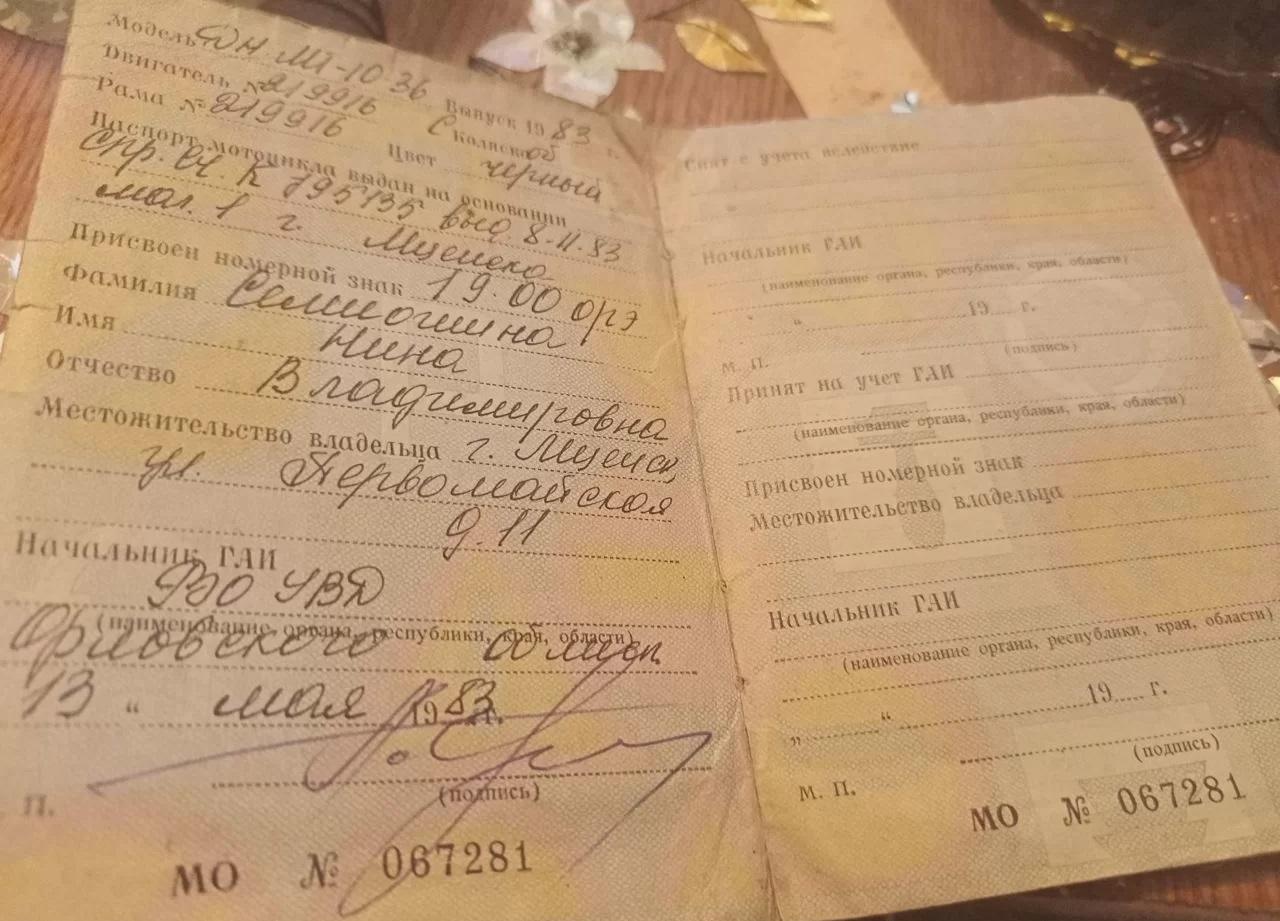 Модель Дн. МТ-10-36 Выпуск 1983 г.
Двигатель № 219916 С Коляской
Рама № 219916 Цвет черный
Паспорт мотоцикла выдан на основании
Спр. Сч. К 795135 выд. 8.11.83
маг. 1 г. Мценска
Присвоен номерной знак 19.00 орэ
Фамилия Селиошина
Имя Нина
Отчество Владимировна
Местожительство владельца г. Мценск,
ул. Первомайская
д. 11
Начальник ГАИ
РЭО УВД
(наименование органа, республики, края, области)
Орловского облисп.
13 “ мая 1983 г.
(подпись)
П.
МО № 067281
Снят с учета вследствие
Начальник ГАИ
(наименование органа, республики, края, области)
„ “ 19 г.
М. П. (подпись)
Принят на учет ГАИ
(наименование органа, республики, края, области)
Присвоен номерной знак
Местожительство владельца
Начальник ГАИ
(наименование органа, республики, края, области)
„ “ 19 г.
(подпись)
М. П.
МО № 067281